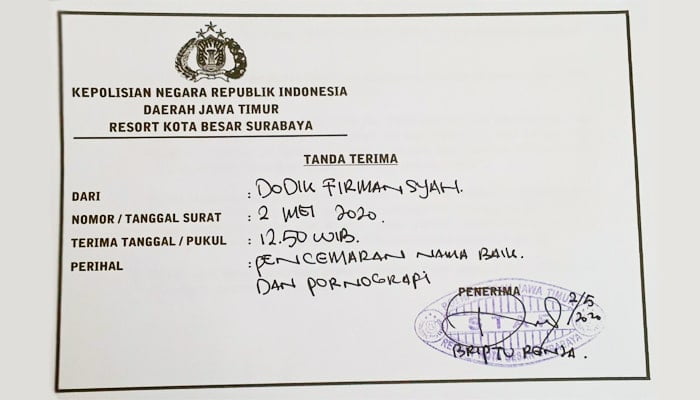 KEPOLISIAN NEGARA REPUBLIK INDONESIA
DAERAH JAWA TIMUR
RESORT KOTA BESAR SURABAYA
TANDA TERIMA
DARI : DODIK FIRMANSYAH.
NOMOR / TANGGAL SURAT : 2 MEI 2020.
TERIMA TANGGAL / PUKUL : 12.50 WIB.
PERIHAL : PENCEMARAN NAMA BAIK
DAN PORNOGRAPI
PENERIMA
JAWA TIMUR
2/5
2020
BRIPTU